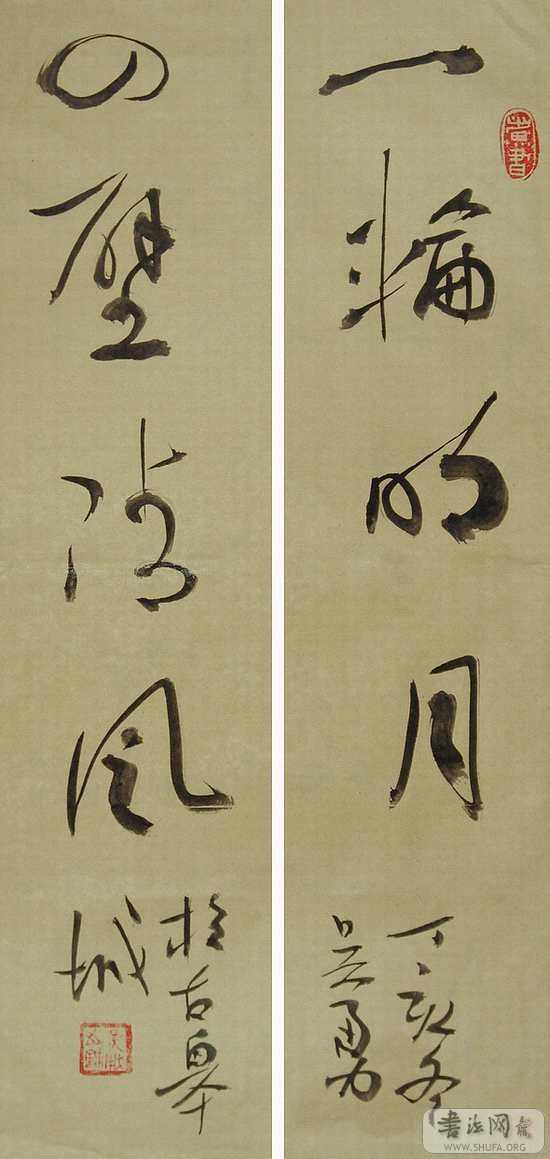 一轮明月
丁亥冬
吴勇
四壁清风
於古皋
城
书法网
WWW.SHUFA.ORG